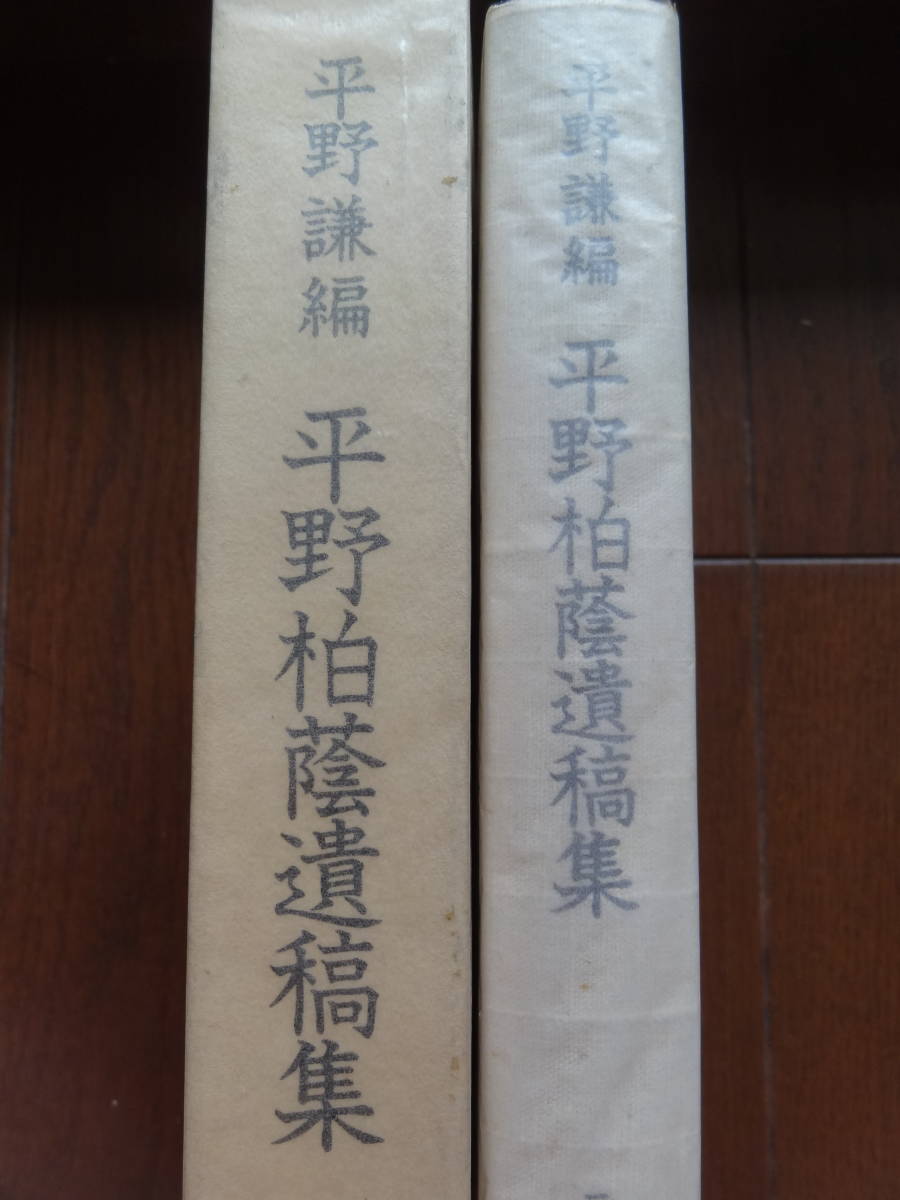 平野謙編 平野柏蔭遺稿集
平野謙編 平野柏蔭遺稿集